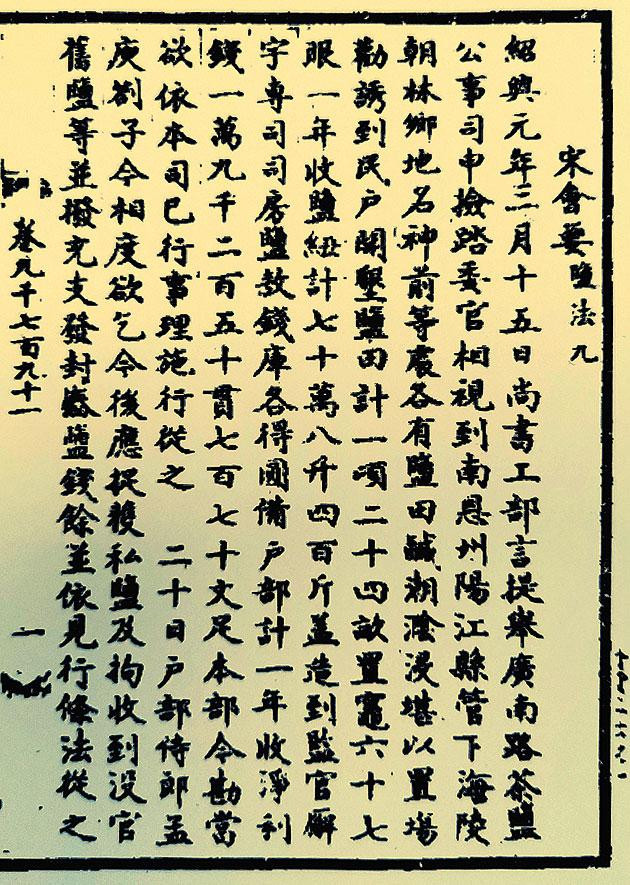 宋會要 鹽法九
紹興元年三月十五日尚書工部言提舉廣南路茶鹽
公事司申撿踏委官相視到南恩州陽江縣管下海陵
朝林鄉地名神前等處各有鹽田鹹潮渰浸堪以置場
勸誘到民戶開墾鹽田計一項二十四畝置竈六十七
眼一年收鹽紐計七十萬八千四百斤蓋造到監官廨
宇專司司房鹽敖錢庫各得圓備戶部計一年收淨利
錢一萬九千二百五十貫七百七十文足本部今勘當
欲依本司已行事理施行從之 二十日戶部侍郎孟
庾劄子今相度欲乞今後應捉獲私鹽及拘收到沒官
舊鹽等並撥充支發封樁鹽錢餘並依見行條法從之
卷九千七百九十一 一